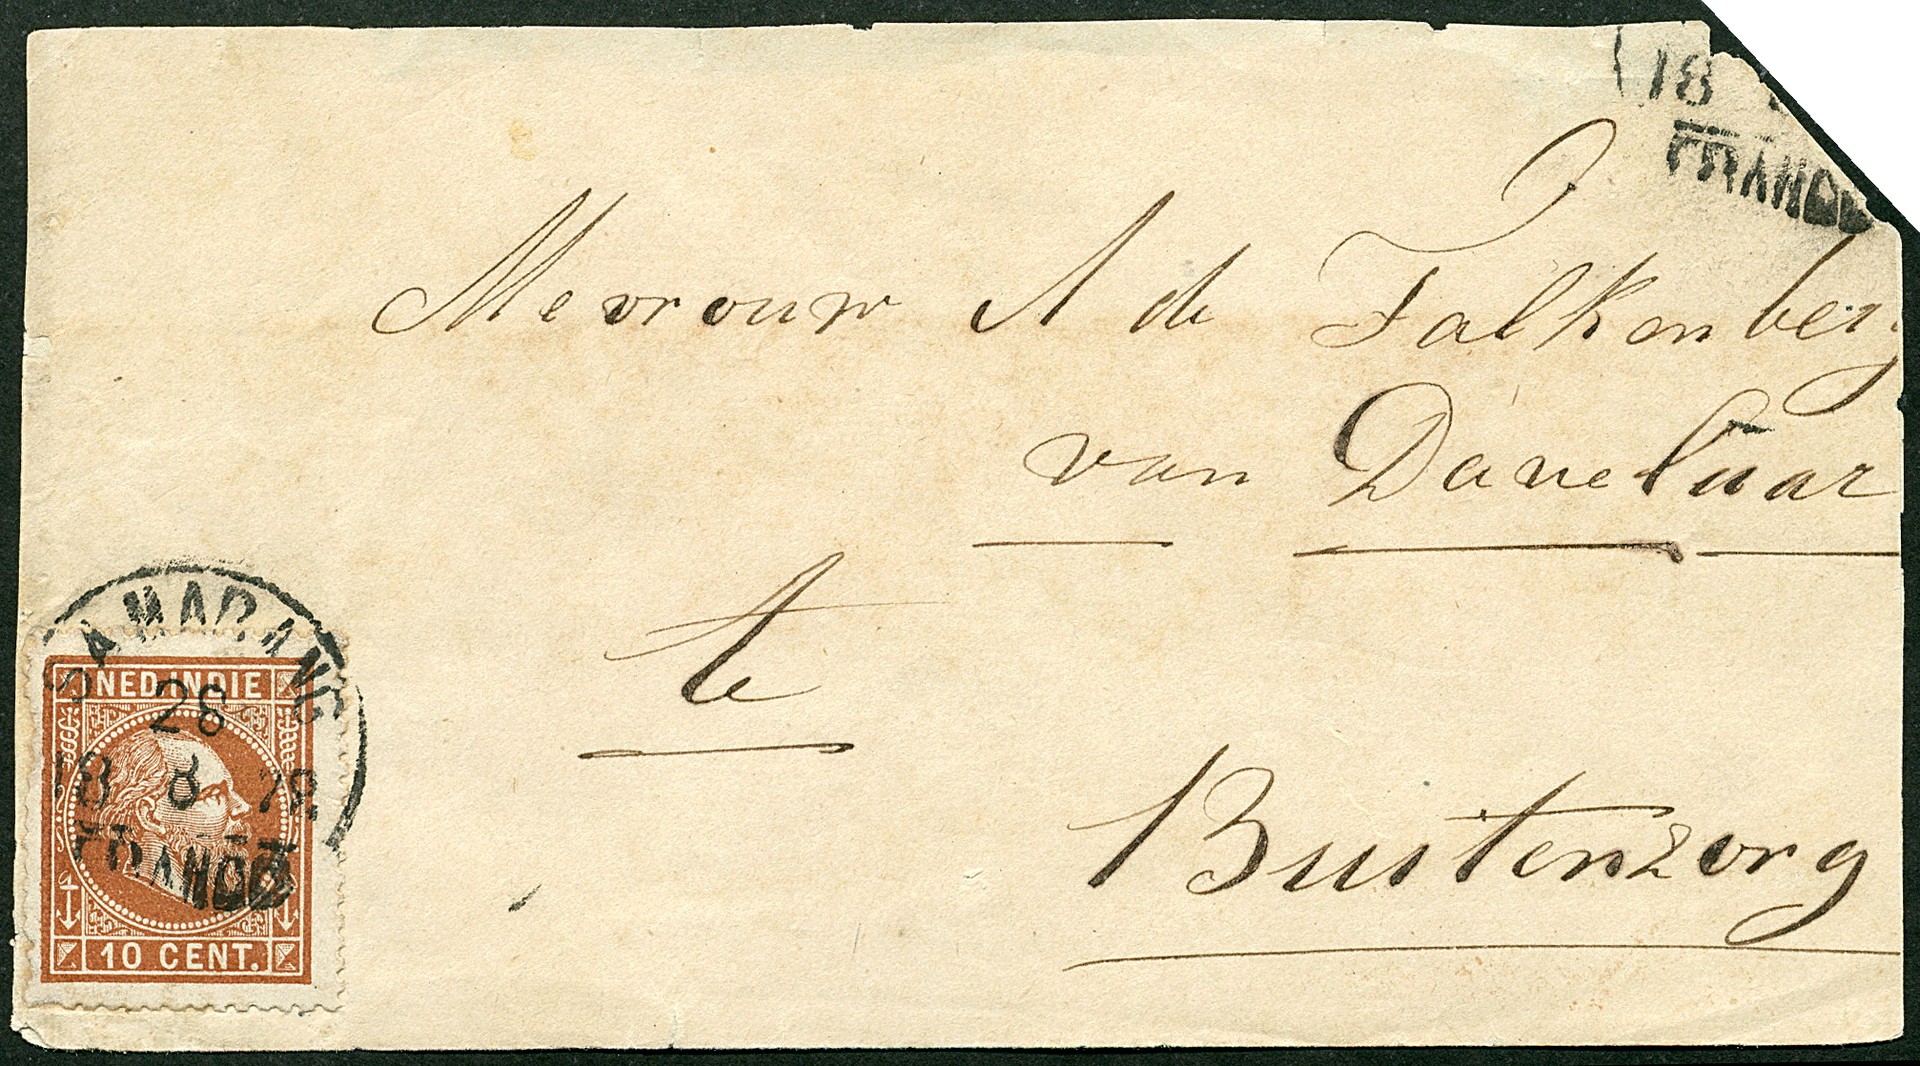 18
FRANCO
Mevrouw A de Falkenberg
van Daneluar
te
Buitenzorg
SAMARANG
28
18 8 72
FRANCO
NED INDIE
10 CENT.